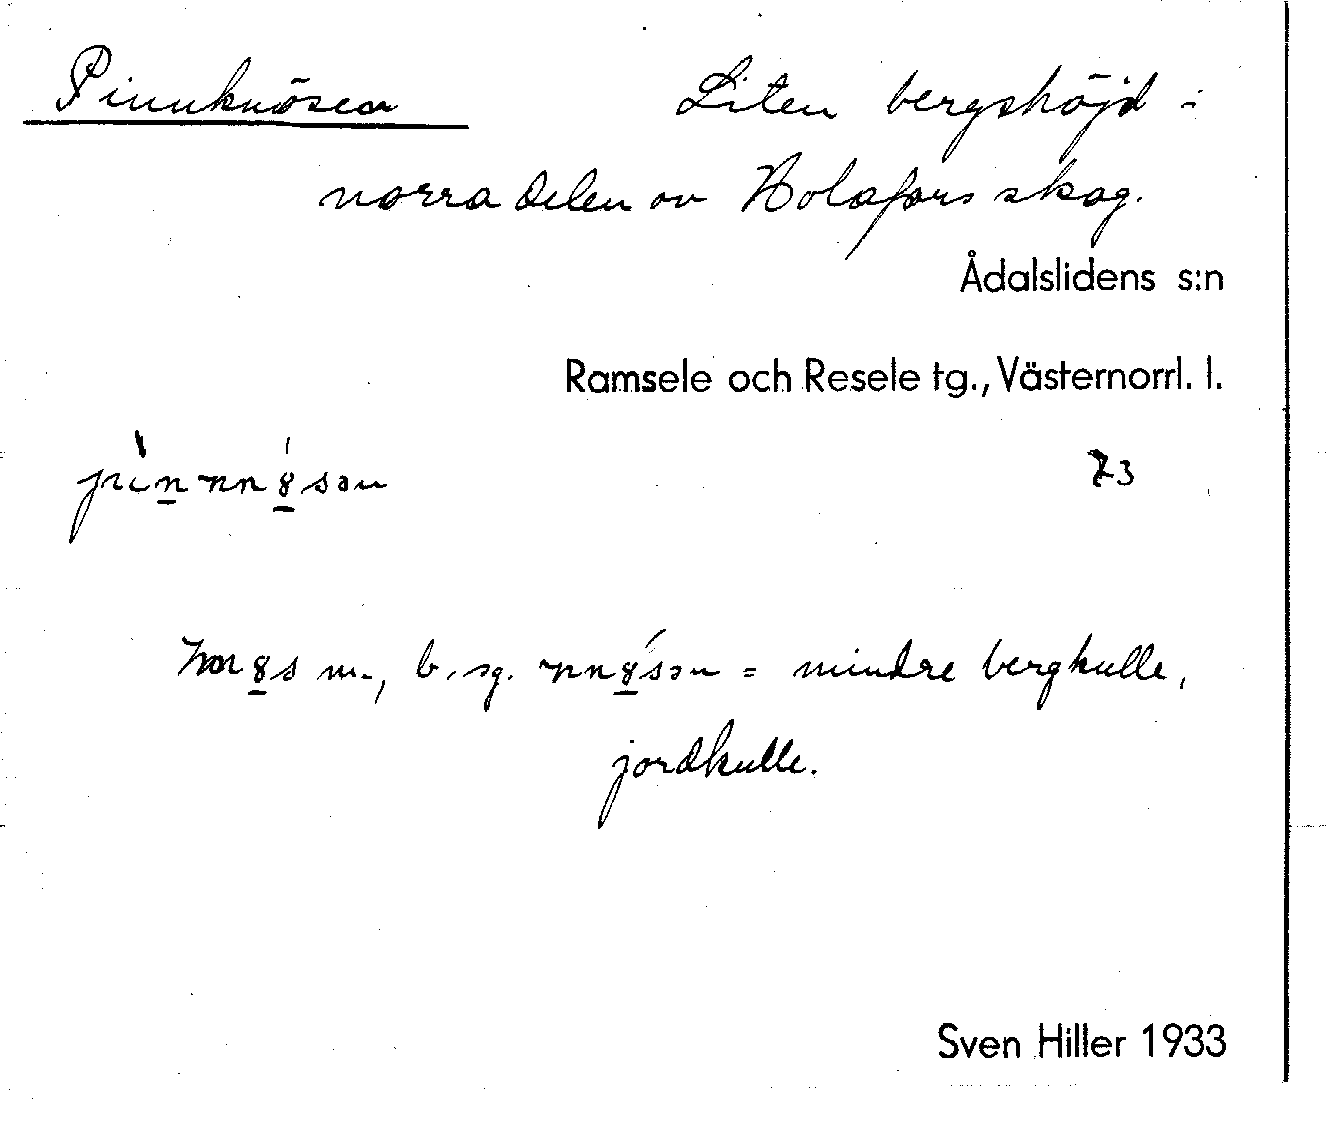 Pinnknösen Liten bergshöjd i
norra delen av Holafors skog.
Ådalslidens s:n
Ramsele och Resele tg., Västernorrl. l.
73
m., b. sg. = mindre bergkulle,
jordkulle.
Sven Hiller 1933